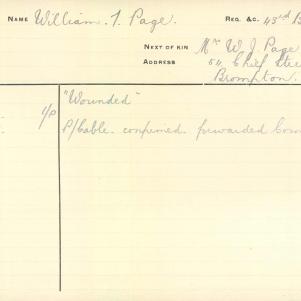 NAME William. T. Page. REG. &C. 43rd B
NEXT OF KIN Mrs W. J. Page
ADDRESS 54 Chief Stree
Brompton.
"Wounded"
1/p P/Cable. confirmed. forwarded Com